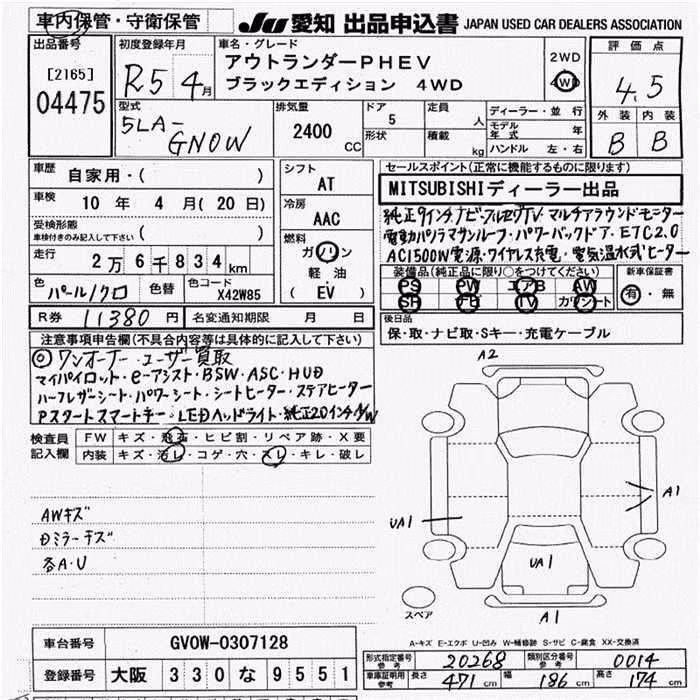 車内保管・守衛保管
JU 愛知 出品申込書 JAPAN USED CAR DEALERS ASSOCIATION
出品番号
[2165]
04475
初度登録年月
R5 4月
車名・グレード
アウトランダーPHEV
ブラックエディション 4WD
2WD
4WD
評価点
4.5
外装 内装
B B
型式
5LA-
GN0W
排気量
2400 CC
ドア 5
形状
定員 人
積載 kg
ディーラー・並行
モデル年式 年
ハンドル 左・右
車歴
自家用・( )
車検
10 年 4 月(20 日)
受検形態
車検付きのみ記入して下さい
( )
走行
2万6千834 km
色 パール/クロ
色替
色コード X42W85
シフト
AT
冷房
AAC
燃料
ガソリン
軽油・
( EV )
セールスポイント(正常に機能するものに限ります)
MITSUBISHIディーラー出品
純正9インチナビ・フルセグTV マルチアラウンドモニター
電動パノラマサンルーフ・パワーバックドア・ETC2.0
AC1500W電源・ワイヤレス充電・電気温水式ヒーター
装備品(純正品に限り○をつけてください)
PS PW エアB AW
SR ナビ TV カワシート
新車保証書
有・無
R券 11380 円
名変通知期限 月 日
後日品
保・取・ナビ取・Sキー・充電ケーブル
注意事項申告欄(不具合内容等は具体的に記入して下さい)
◎ワンオーナー・ユーザー買取
マイパイロット・e-アシスト・BSW・ASC・HUD
ハーフレザーシート・パワーシート・シートヒーター・ステアヒーター
Pスタートスマートキー・LEDヘッドライト・純正20インチA/W
検査員記入欄
FW キズ・飛石・ヒビ割・リペア跡・X要
内装 キズ・汚レ・コゲ・穴・スレ・キレ・破レ
AWキズ
Dミラーキズ
各A・U
A2
A1
UA1
UA1
A1
スペア
A-キズ E-エクボ U-凹み W-補修跡 S-サビ C-腐食 XX-交換済
車台番号 GN0W-0307128
登録番号 大阪 330 な 9551
形式指定番号 参考 20268
類別区分番号 参考 0014
車庫証明用 参考 長さ 471 cm 幅 186 cm 高さ 174 cm